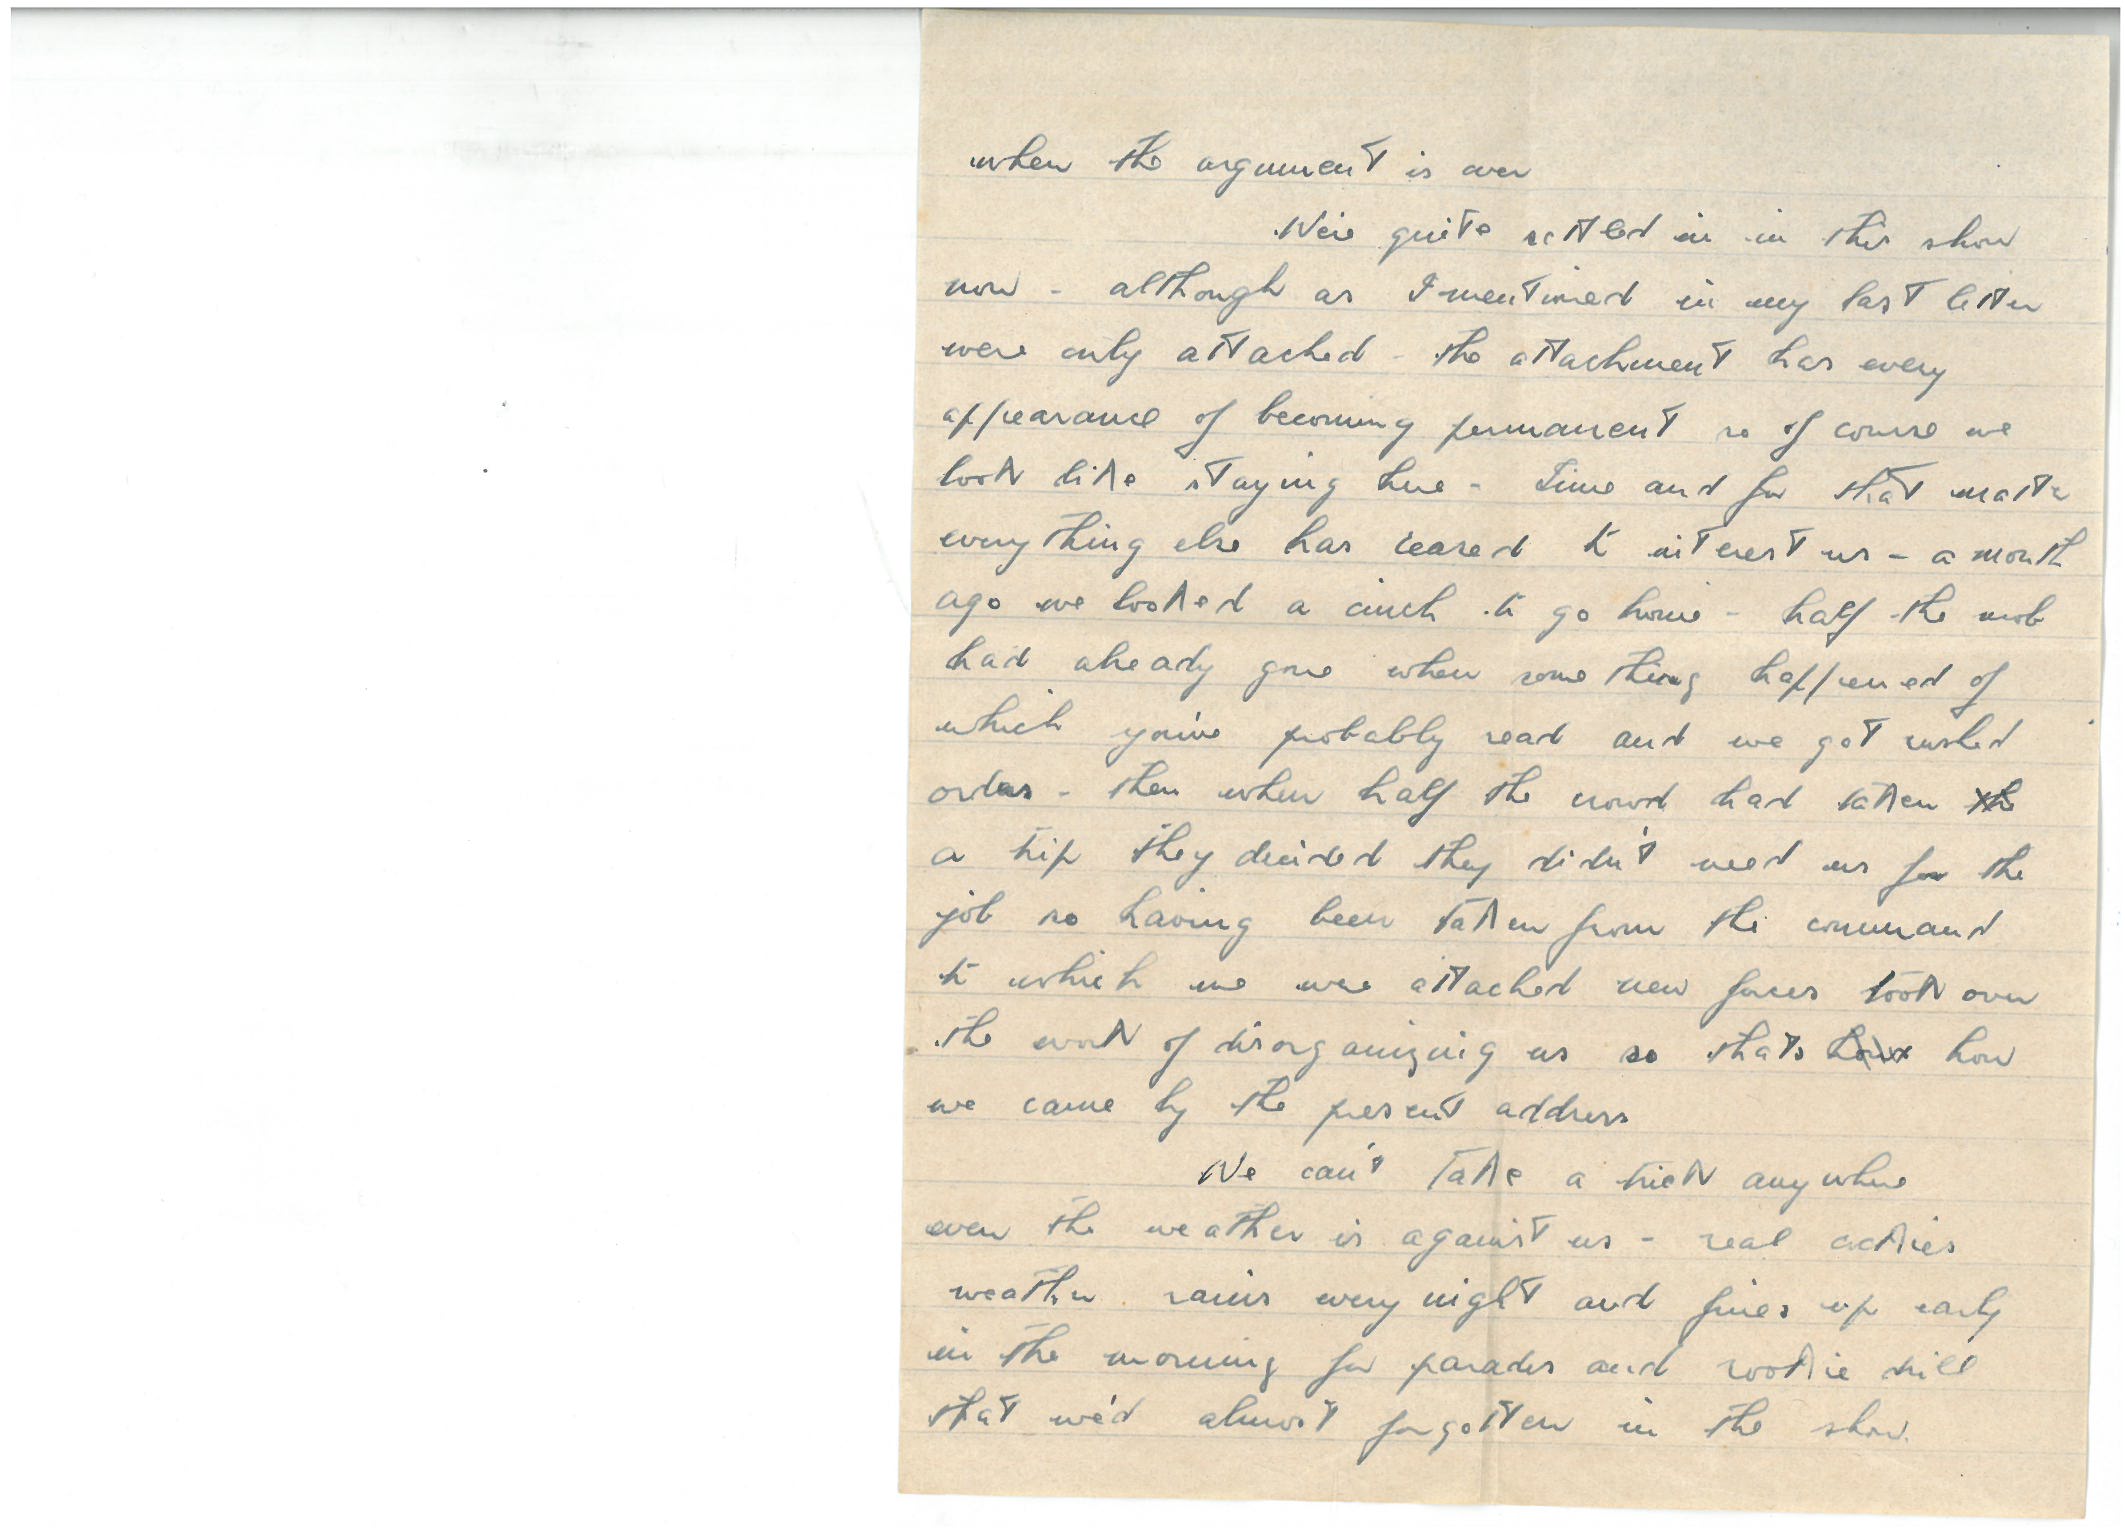 when the argument is over
We're quite settled in in this show
now - although as I mentioned in my last letter
were only attached - the attachment has every
appearance of becoming permanent so of course we
look like staying here - Time and for that matter
everything else has ceased to interest us - a month
ago we looked a cinch to go home - half the mob
had already gone when something happened of
which you've probably read and we got rushed
orders - then when half the crowd had taken the
a trip they decided they didn't need us for the
job so having been taken from the command
to which we were attached new forces took over
the work of disorganizing us so thats how how
we came by the present address
We can't take a trick anywhere
even the weather is against us - real
weather rains every night and fines up early
in the morning for parades and rookie drill
that we'd almost forgotten in the show.